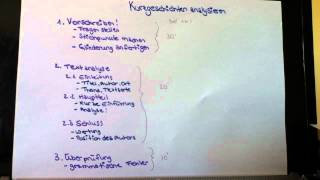 Kurzgeschichten analysieren
1. Vorschreiben!
- Fragen stellen
- Stichpunkte machen
- Gliederung anfertigen
30'
2. Textanalyse
2.1 Einleitung
- Titel, Autor, Ort
- Thema, Textsorte
2.2 Hauptteil
- Kurze Einführung
- Analyse!
2.3 Schluss
- Wertung
- Position des Autors
3. Überprüfung
- grammatische Fehler
10'